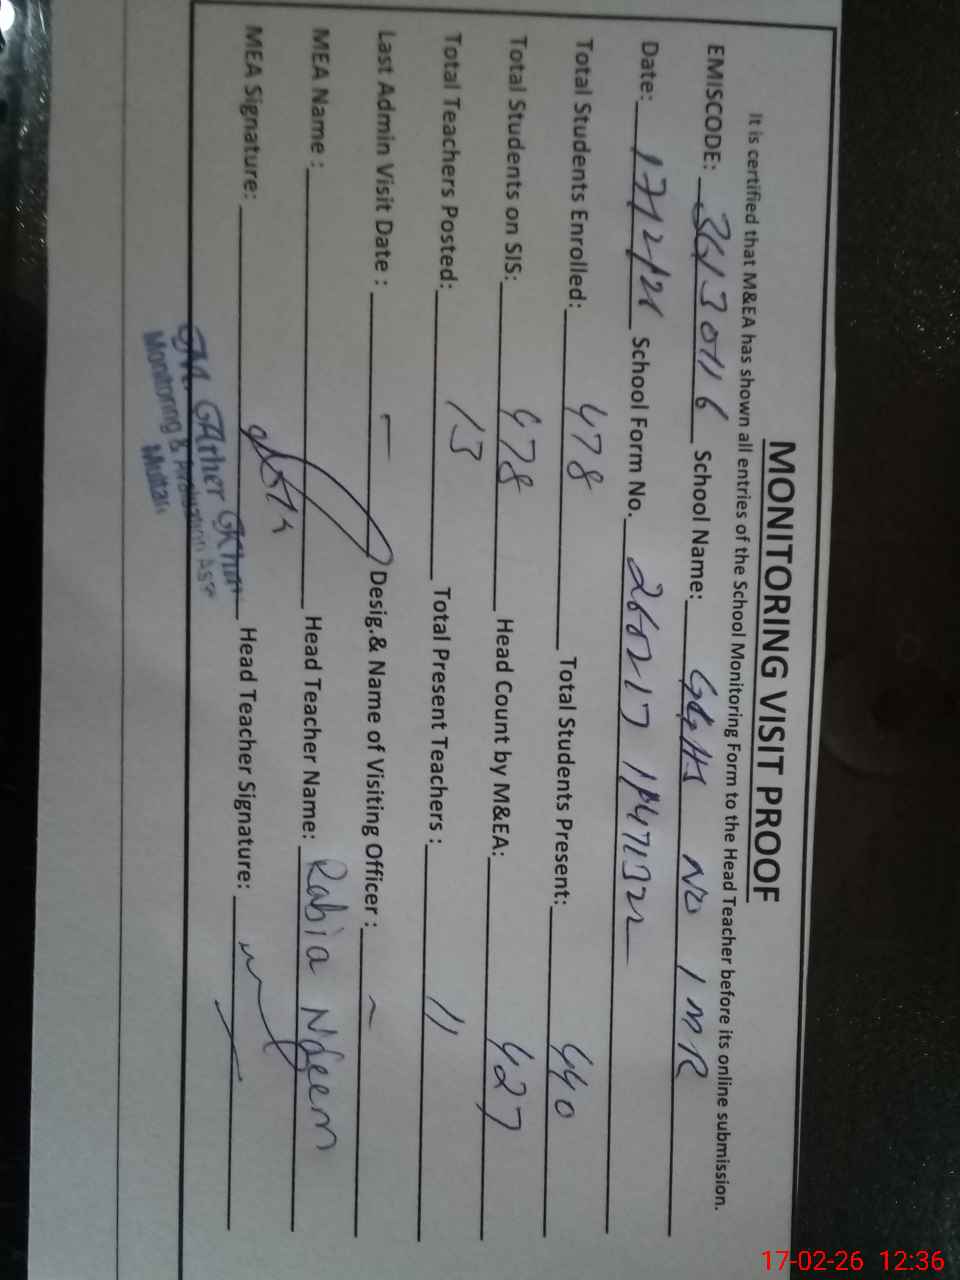 MONITORING VISIT PROOF
It is certified that M&EA has shown all entries of the School Monitoring Form to the Head Teacher before its online submission.
EMISCODE: 36130116 School Name: GGHS NO 1 MR
Date: 17/2/26 School Form No. 260217
Total Students Enrolled: 478 Total Students Present: 440
Total Students on SIS: 478 Head Count by M&EA: 427
Total Teachers Posted: 13 Total Present Teachers : 11
Last Admin Visit Date : – Desig.& Name of Visiting Officer : –
MEA Name : Head Teacher Name: Rabia Naeem
MEA Signature: Head Teacher Signature:
Monitoring &
Multan
17-02-26 12:36